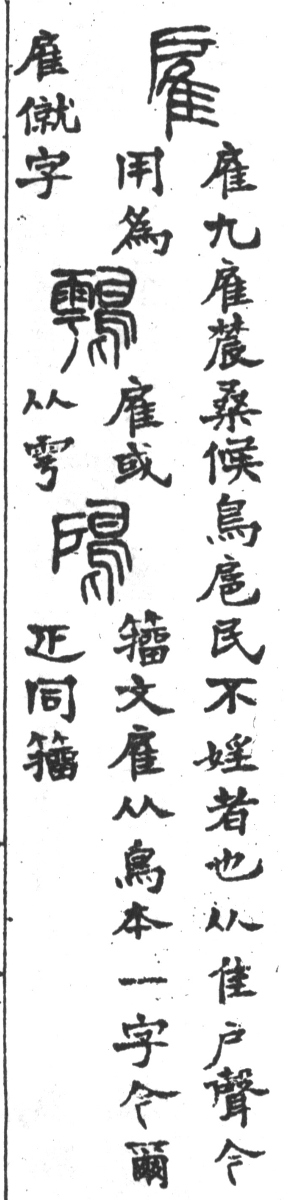 雇
雇九雇農桑候鳥扈民不婬者也从隹户聲今
用為
雇僦字
雇或
从雩
鳸
籀文雇从鳥本一字今爾
疋同籀